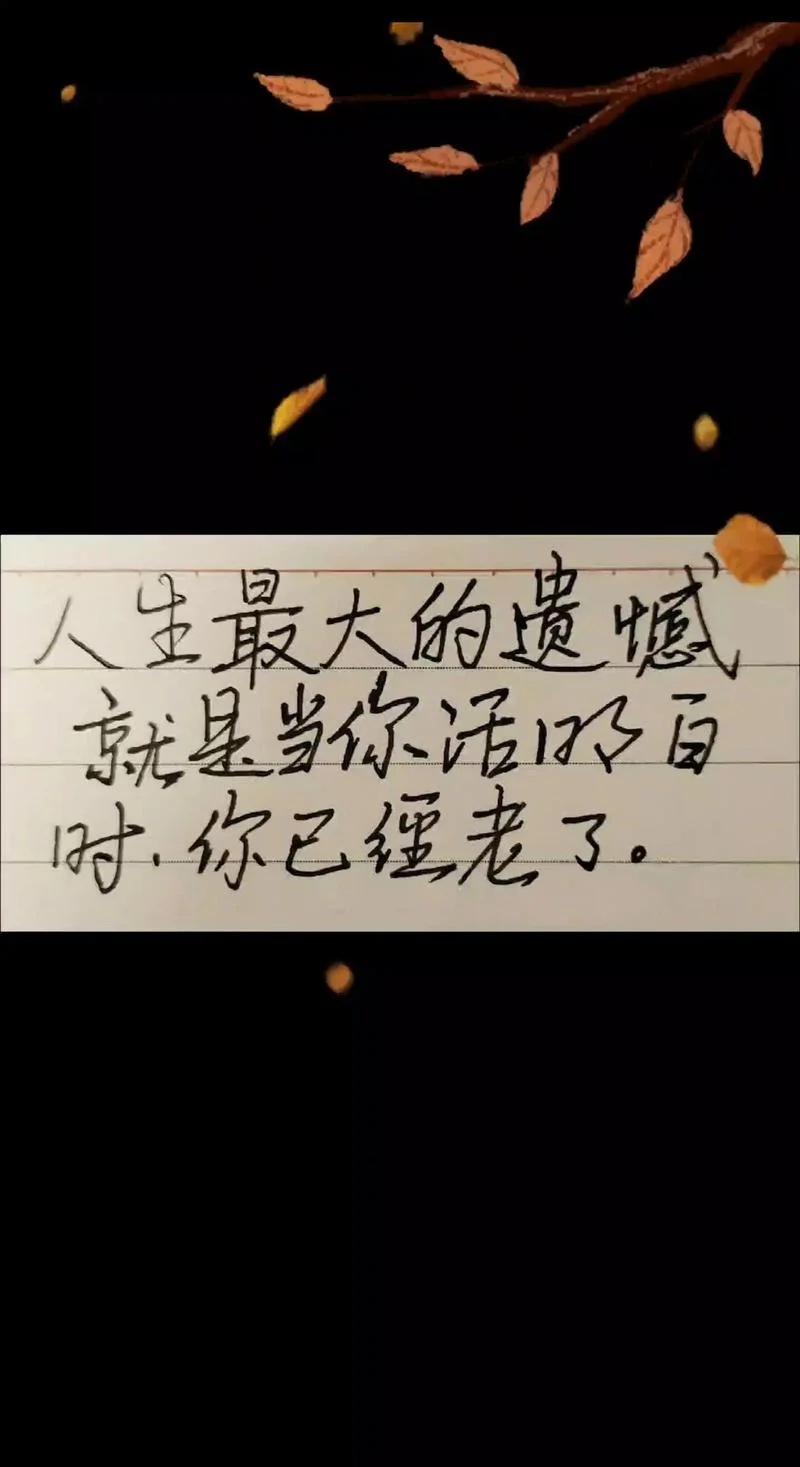 人生最大的遗憾
就是当你活明白
时,你已經老了。